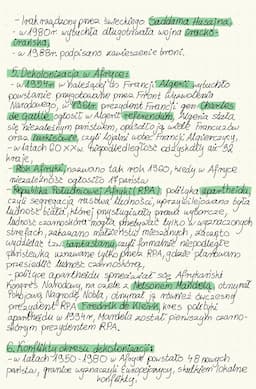 - Irak rządzony przez świeckiego Saddama Husajna,
- w 1980r wybuchła długotrwała wojna iracko-
irańska,
- w 1988r podpisano zawieszenie broni.
5. Dekolonizacja w Afryce:
- w 1954r w należącej do Francji Algierii wybuchło
powstanie przygotowane przez Front Wyzwolenia
Narodowego, w 1961r prezydent Francji gen Charles
de Gaulle ogłosił w Algierii referendum, Algieria stała
się niezależnym państwem, opuściło ją wiele Francuzów
oraz harkisów, czyli
- w latach 60 XXw niepodległość odzyskały aż 32
kraje,
- Rok Afryki, nazwano tak rok 1960, kiedy w Afryce
niezależność ogłosiło 17 państw
- Republika Południowej Afryki (RPA), polityka apartheidu,
czyli segregacja rasowa ludności, uprzywilejowana była
ludność biała, której przysługiwały prawa wyborcze,
ludność czarnoskóra mogła przebywać tylko w wyznaczonych
strefach, zakazano małżeństw mieszanych, zaczęto
wydzielać tzw bantustany, czyli formalnie niepodległe
państewka, uznawane tylko przez RPA, gdzie planowano
przesiedlić ludność czarnoskórą,
- polityce apartheidu sprzeciwiał się Afrykański
Kongres Narodowy, na czele z Nelsonem Mandelą, otrzymał
Pokojową Nagrodę Nobla, otrzymał ją również ówczesny
prezydent RPA Frederik de Klerk, kres polityki
apartheidu w 1994r, Mandela został pierwszym czarno-
skórym prezydentem RPA.
6. Konflikty okresu dekolonizacji:
- w latach 1950-1980 w Afryce powstało 48 nowych
państw, granice wyznaczyli Europejczycy, skutkiem lokalne
konflikty,